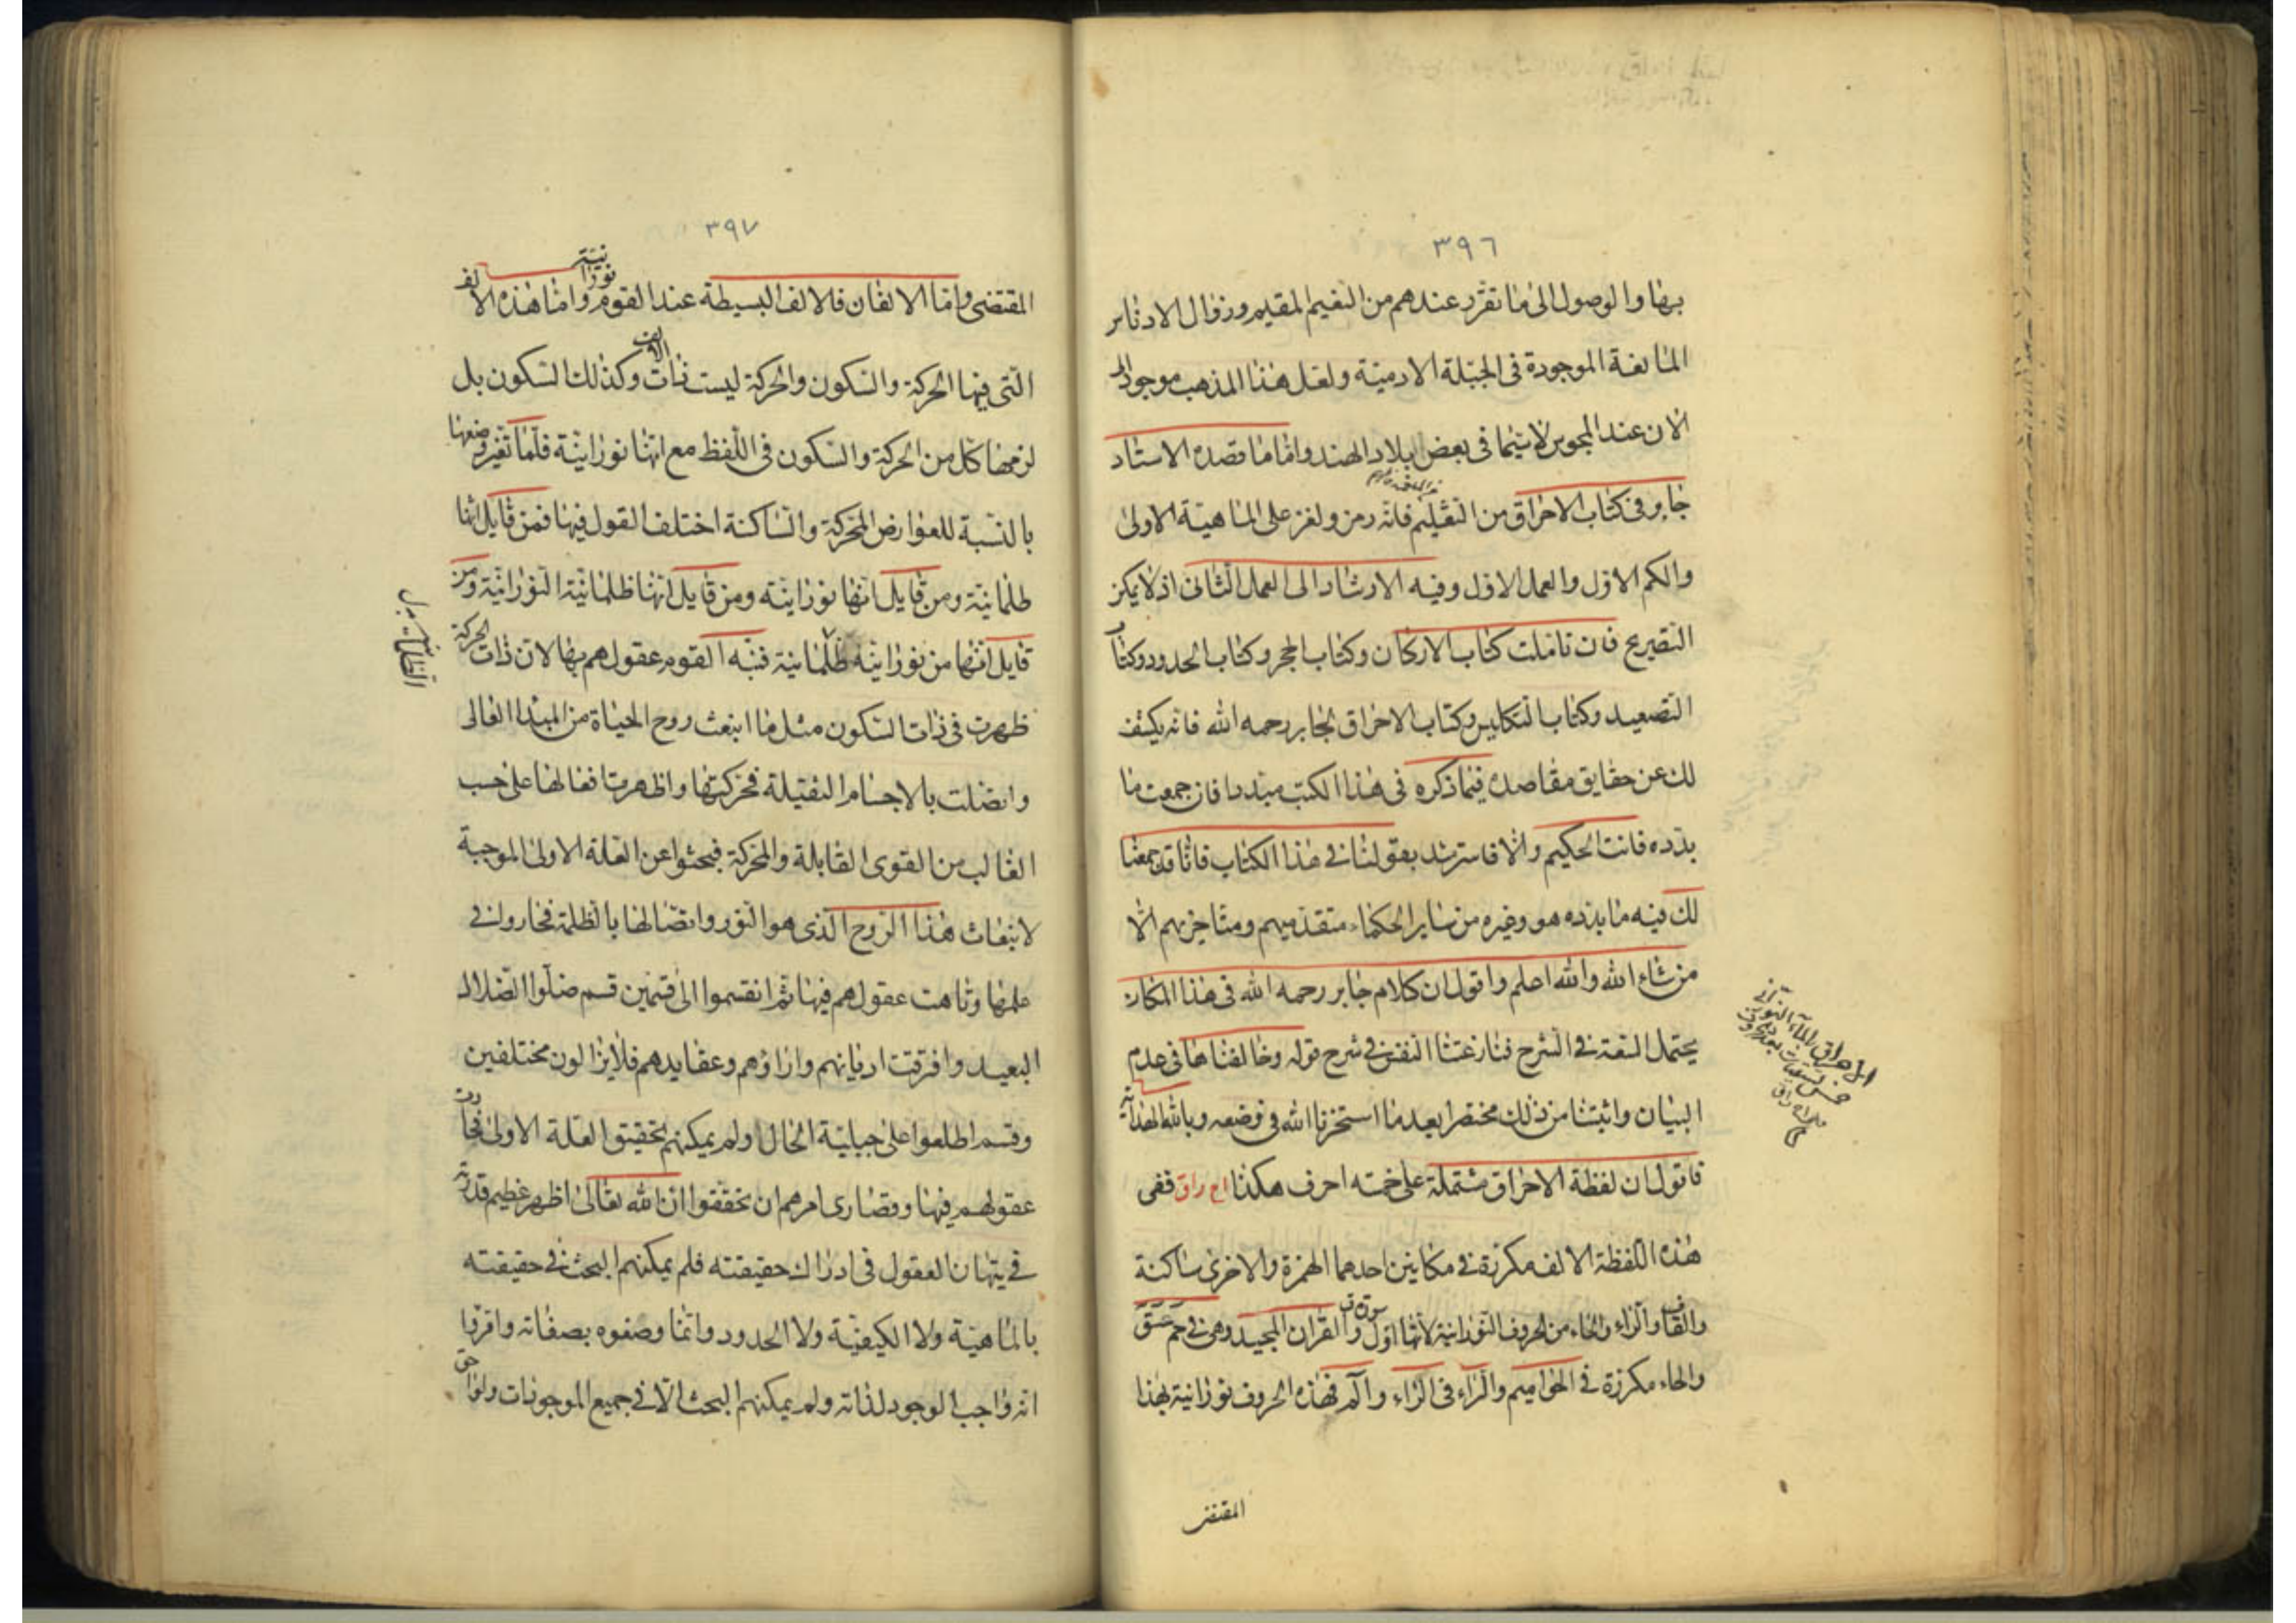 ٣٩٦
بها والوصول الى ما تقرر عندهم من النعيم المقيم وزوال الادناس
المانعة الموجودة فى الجبلة الادمية ولعل هذا المذهب موجودا الى
الان عند المجوس لا سيما فى بعض بلاد الهند واما ما قصده الاستاد
جابر فى كتاب الاحراق من التعليم فانه رمز ولغز على الماهية الاولى
والكم الاول والعمل الاول وفيه الارشاد الى العمل الثانى اذ لا يمكن
التصريح فان تاملت كتاب الاركان وكتاب الحجر وكتاب الحدود وكتاب
التصعيد وكتاب التكليس وكتاب الاحراق لجابر رحمه الله فانه يكشف
لك عن حقايق مقاصده فيما ذكره فى هذا الكتب مبددا فان جمعت ما
بدده فانت الحكيم والا فاسترشد بقولنا فى هذا الكتاب فاننا قد جمعنا
لك فيه ما بدده هو وغيره من ساير الحكماء متقدميهم ومتاخريهم الا
من شاء الله والله اعلم واقول ان كلام جابر رحمه الله فى هذا المكان
يحتمل السعة فى الشرح فنازعتنا النفس فى شرح قوله وخالفناها فى عدم
البيان واثبتنا من ذلك مختصرا بعد ما استخرنا الله فى وضعه وبالله الهداية
فاقول ان لفظة الاحراق مشتملة على خمسة احرف هكذا اح راق ففى
هذه اللفظة الالف مكررة فى مكانين احدهما الهمزة والاخرى ساكنة
والقاف والراء والحاء من الحروف النورانية لانها اول سورة ق والقران المجيد وهى فى حم عسق
والحاء مكررة فى الحواميم والراء فى الراء والمر فهذه الحروف نورانية بهذا
المقتضى
٣٩٧
المقتضى واما الالفان فالالف البسيطة عند القوم نورانية واما هذه الالف
التى فيها الحركة والسكون والحركة ليست ذات الالف وكذلك السكون بل
لزمها كل من الحركة والسكون فى اللفظ مع انها نورانية فلما تغير وضعها
بالنسبة للعوارض المحركة والساكنة اختلف القول فيها فمن قايل انها
ظلمانية ومن قايل انها نورانية ومن قايل انها ظلمانية النورانية ومن
قايل انها من نورانية ظلمانية فنبه القوم عقولهم بها لان ذات الحركة
ظهرت فى ذات السكون مثل ما انبعث روح الحياة من المبدا العالى
واتصلت بالاجسام الثقيلة فحركتها واظهرت افعالها على حسب
الغالب من القوى القابلة والمحركة فبحثوا عن العلة الاولى الموجبة
لانبعاث هذا الروح الذى هو النور واتصالها بالظلمة فحاروا فى
علمها وتاهت عقولهم فيها ثم انقسموا الى قسمين قسم ضلوا الضلال
البعيد وافرقت اديانهم واراؤهم وعقايدهم فلا يزالون مختلفين
وقسم اطلعوا على جبلية الحال ولم يمكنهم تحقيق العلة الاولى فحارت
عقولهم فيها وقصارى امرهم ان تحققوا ان الله تعالى اظهر عظيم قدرته
فى تيهان العقول فى ادراك حقيقته فلم يمكنهم البحث فى حقيقته
بالماهية ولا الكيفية ولا الحدود وانما وصفوه بصفاته واقروا
انه واجب الوجود لذاته ولم يمكنهم البحث الا فى جميع الموجودات ولواحق